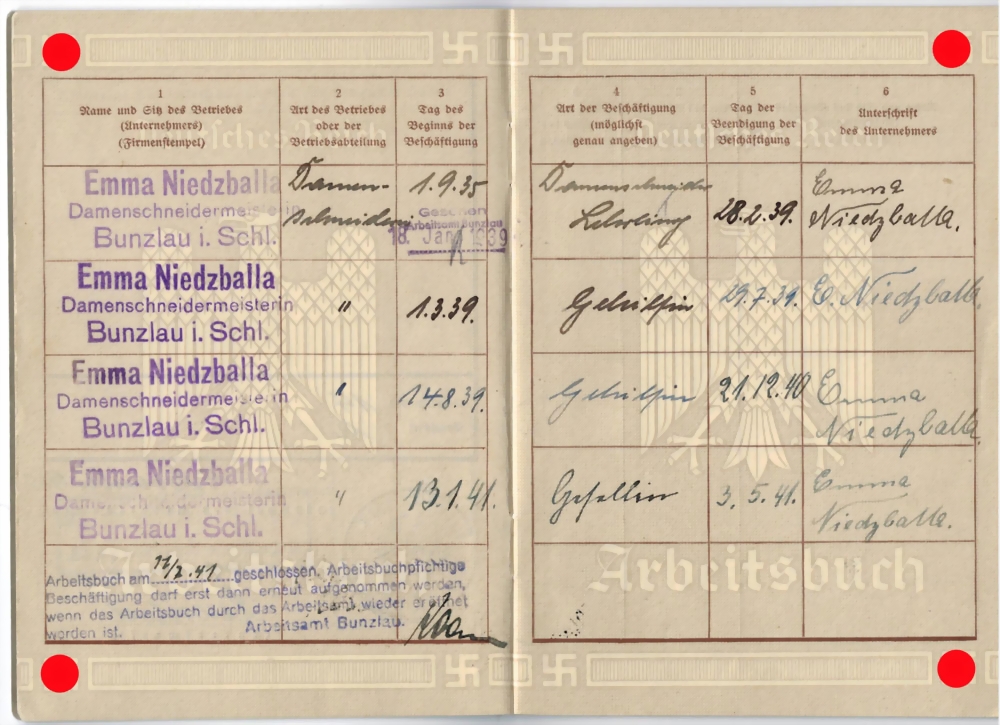 1
Name und Sitz des Betriebes
(Unternehmers)
(Firmenstempel)
2
Art des Betriebes
oder der
Betriebsabteilung
3
Tag des
Beginns der
Beschäftigung
Emma Niedzballa
Damenschneidermeisterin
Bunzlau i. Schl.
Damen-
schneiderei
1.9.35
Gesehen
Arbeitsamt Bunzlau
18. Jan. 1939
Emma Niedzballa
Damenschneidermeisterin
Bunzlau i. Schl.
"
1.3.39.
Emma Niedzballa
Damenschneidermeisterin
Bunzlau i. Schl.
"
14.8.39.
Emma Niedzballa
Damenschneidermeisterin
Bunzlau i. Schl.
"
13.1.41.
Arbeitsbuch am geschlossen. Arbeitsbuchpflichtige
Beschäftigung darf erst dann erneut aufgenommen werden,
wenn das Arbeitsbuch durch das Arbeitsamt wieder eröffnet
worden ist. Arbeitsamt Bunzlau.
Arbeitsbuch
4
Art der Beschäftigung
(möglichst
genau angeben)
5
Tag der
Beendigung der
Beschäftigung
6
Unterschrift
des Unternehmers
Deutsches Reich
Damenschneider
Lehrling
28.2.39.
Emma
Niedzballa.
Gehilfin
29.7.39.
E. Niedzballa.
Gehilfin
21.12.40
Emma
Niedzballa
Gesellin
3.5.41.
Emma
Niedzballa.
Arbeitsbuch